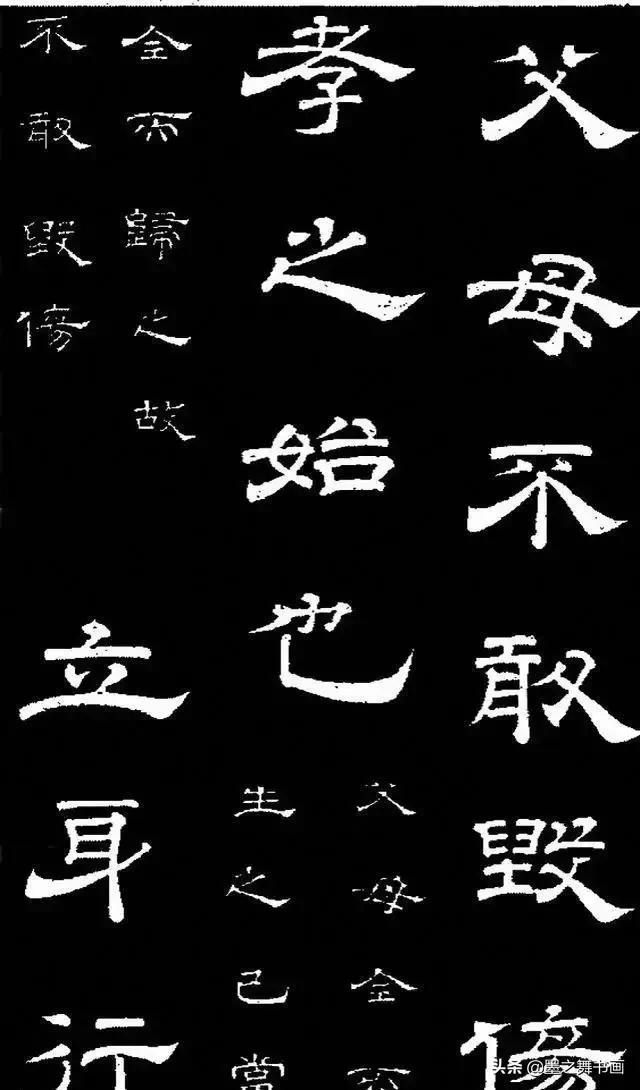 父母不敢毀傷
孝之始也
父母全而
生之己當
全而歸之故
不敢毀傷
立身行
头条 @墨之舞书画